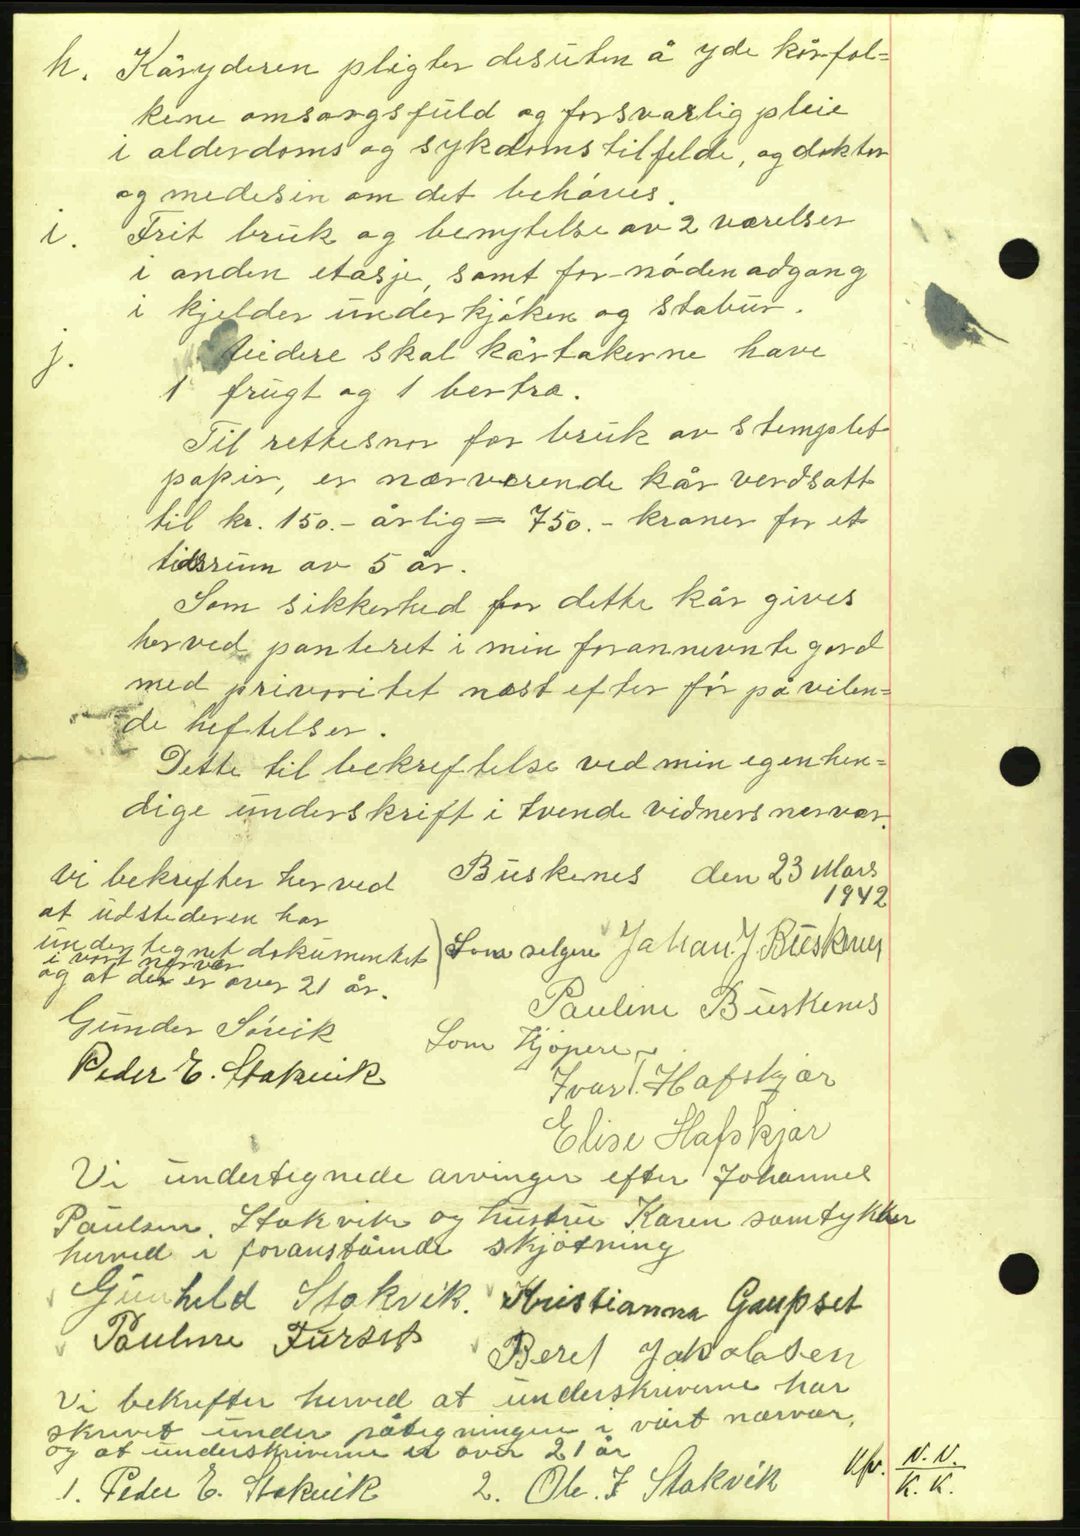 h. Kåryderen pligter desuten å yde kårfol=
kene omsorgsfuld og forsvarlig pleie
i alderdoms og sykdomstilfelde, og doktor
og medesin om det behöves.
i. Frit bruk og benytelse av 2 værelser
i anden etasje, samt for-nöden adgang
i kjelder under kjöken og stabur.
j. Videre skal kårtakerne have
1 frugt og 1 bertre.
Til rettesnor for bruk av stemplet
papir, er nærværende kår verdsatt
til kr. 150.- årlig = 750.- kroner for et
tidsrum av 5 år.
Som sikkerhed for dette kår gives
herved panteret i min forannevnte gard
med privoritet næst efter för på vilen=
de heftelser.
Dette til bekreftelse ved min egenhen=
dige underskrift i tvende vidners nervær.
Buskenes den 23 Mars
1942
Vi bekrefter herved
at udstederen har
undertegnet dokumentet
i vort nerver
og at der er over 21 år.
Gunder Sövik
Peder E. Stokvik
Som selgere Johan J. Buskenes
Pauline Buskenes
Som Kjöpere
Ivar J. Hafskjær
Elise Hafskjær
Vi undertegnede arvinger efter Johannes
Paulsen Stokvik og hustru Karen samtykker
herved i foranstående skjötning
Gunhild Stokvik. Kristianna Gaupset
Pauline Furset Beret Jakobsen
Vi bekrefter herved at underskriverne har
skrevet under påtegningen i vårt nærvær,
og at underskriverne er over 21 år
1. Peder E. Stokvik 2. Ole. J Stokvik
Kfr. N. N.
K. K.